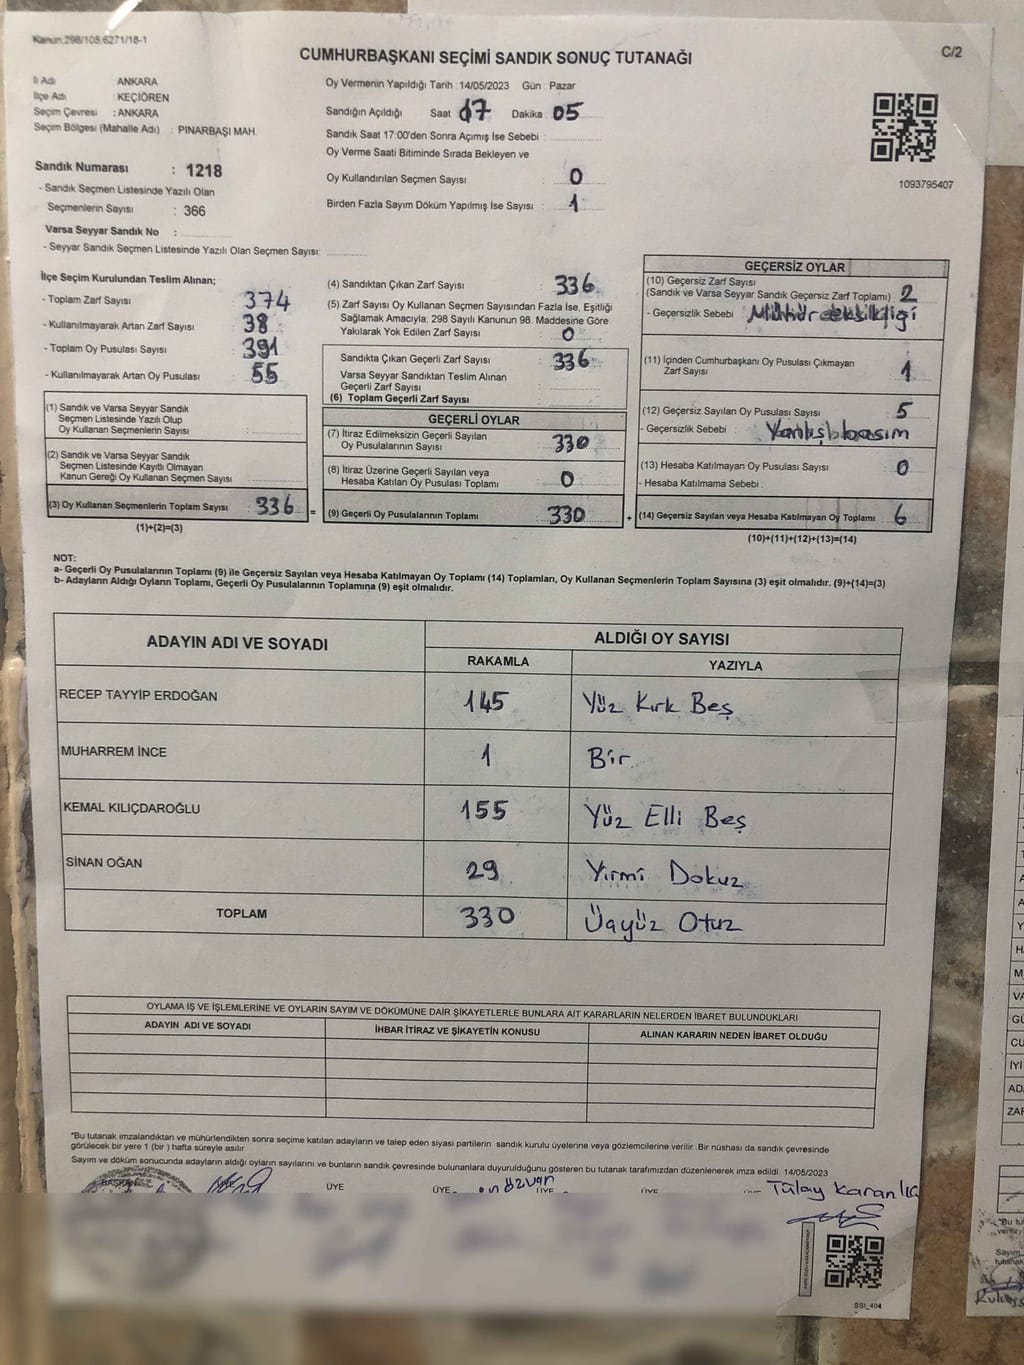 Kanun:298/105,6271/18-1
C/2
CUMHURBAŞKANI SEÇİMİ SANDIK SONUÇ TUTANAĞI
İl Adı ANKARA
İlçe Adı KEÇİÖREN
Seçim Çevresi : ANKARA
Seçim Bölgesi (Mahalle Adı) : PINARBAŞI MAH
Sandık Numarası : 1218
- Sandık Seçmen Listesinde Yazılı Olan
Seçmenlerin Sayısı : 366
Varsa Seyyar Sandık No :
- Seyyar Sandık Seçmen Listesinde Yazılı Olan Seçmen Sayısı:
Oy Vermenin Yapıldığı Tarih : 14/05/2023 Gün : Pazar
Sandığın Açıldığı Saat 17 Dakika : 05
Sandık Saat 17:00'den Sonra Açımış İse Sebebi :
Oy Verme Saati Bitiminde Sırada Bekleyen ve
Oy Kullandırılan Seçmen Sayısı : 0
Birden Fazla Sayım Döküm Yapılmış İse Sayısı : 1
1093795407
İlçe Seçim Kurulundan Teslim Alınan;
- Toplam Zarf Sayısı : 374
- Kullanılmayarak Artan Zarf Sayısı : 38
- Toplam Oy Pusulası Sayısı : 391
- Kullanılmayarak Artan Oy Pusulası : 55
(1) Sandık ve Varsa Seyyar Sandık
Seçmen Listesinde Yazılı Olup
Oy Kullanan Seçmenlerin Sayısı :
(2) Sandık ve Varsa Seyyar Sandık
Seçmen Listesinde Kayıtlı Olmayan
Kanun Gereği Oy Kullanan Seçmen Sayısı :
(3) Oy Kullanan Seçmenlerin Toplam Sayısı : 336 =
(1)+(2)=(3)
(4) Sandıktan Çıkan Zarf Sayısı : 336
(5) Zarf Sayısı Oy Kullanan Seçmen Sayısından Fazla İse, Eşitliği
Sağlamak Amacıyla, 298 Sayılı Kanunun 98. Maddesine Göre
Yakılarak Yok Edilen Zarf Sayısı : 0
Sandıkta Çıkan Geçerli Zarf Sayısı : 336
Varsa Seyyar Sandıktan Teslim Alınan
Geçerli Zarf Sayısı :
(6) Toplam Geçerli Zarf Sayısı :
GEÇERLİ OYLAR
(7) İtiraz Edilmeksizin Geçerli Sayılan
Oy Pusulalarının Sayısı : 330
(8) İtiraz Üzerine Geçerli Sayılan veya
Hesaba Katılan Oy Pusulası Toplamı : 0
(9) Geçerli Oy Pusulalarının Toplamı : 330 +
GEÇERSİZ OYLAR
(10) Geçersiz Zarf Sayısı
(Sandık ve Varsa Seyyar Sandık Geçersiz Zarf Toplamı) : 2
- Geçersizlik Sebebi : Mühür eksikliği
(11) İçinden Cumhurbaşkanı Oy Pusulası Çıkmayan
Zarf Sayısı : 1
(12) Geçersiz Sayılan Oy Pusulası Sayısı : 5
- Geçersizlik Sebebi : Yanlış basım
(13) Hesaba Katılmayan Oy Pusulası Sayısı : 0
- Hesaba Katılmama Sebebi :
(14) Geçersiz Sayılan veya Hesaba Katılmayan Oy Toplamı : 6
(10)+(11)+(12)+(13)=(14)
NOT:
a- Geçerli Oy Pusulalarının Toplamı (9) ile Geçersiz Sayılan veya Hesaba Katılmayan Oy Toplamı (14) Toplamları, Oy Kullanan Seçmenlerin Toplam Sayısına (3) eşit olmalıdır. (9)+(14)=(3)
b- Adayların Aldığı Oyların Toplamı, Geçerli Oy Pusulalarının Toplamına (9) eşit olmalıdır.
ADAYIN ADI VE SOYADI
ALDIĞI OY SAYISI
RAKAMLA YAZIYLA
RECEP TAYYİP ERDOĞAN 145 Yüz Kırk Beş
MUHARREM İNCE 1 Bir
KEMAL KILIÇDAROĞLU 155 Yüz Elli Beş
SİNAN OĞAN 29 Yirmi Dokuz
TOPLAM 330 Üçyüz Otuz
OYLAMA İŞ VE İŞLEMLERİNE VE OYLARIN SAYIM VE DÖKÜMÜNE DAİR ŞİKAYETLERLE BUNLARA AİT KARARLARIN NELERDEN İBARET BULUNDUKLARI
ADAYIN ADI VE SOYADI İHBAR İTİRAZ VE ŞİKAYETİN KONUSU ALINAN KARARIN NEDEN İBARET OLDUĞU
*Bu tutanak imzalandıktan ve mühürlendikten sonra seçime katılan adayların ve talep eden siyasi partilerin sandık kurulu üyelerine veya gözlemcilerine verilir. Bir nüshası da sandık çevresinde
görülecek bir yere 1 (bir) hafta süreyle asılır.
Sayım ve döküm sonucunda adayların aldığı oyların sayılarını ve bunların sandık çevresinde bulunanlara duyurulduğunu gösteren bu tutanak tarafımızdan düzenlenerek imza edildi. 14/05/2023
BAŞKAN ÜYE ÜYE ÜYE ÜYE
Tülay Karan
SSI_404